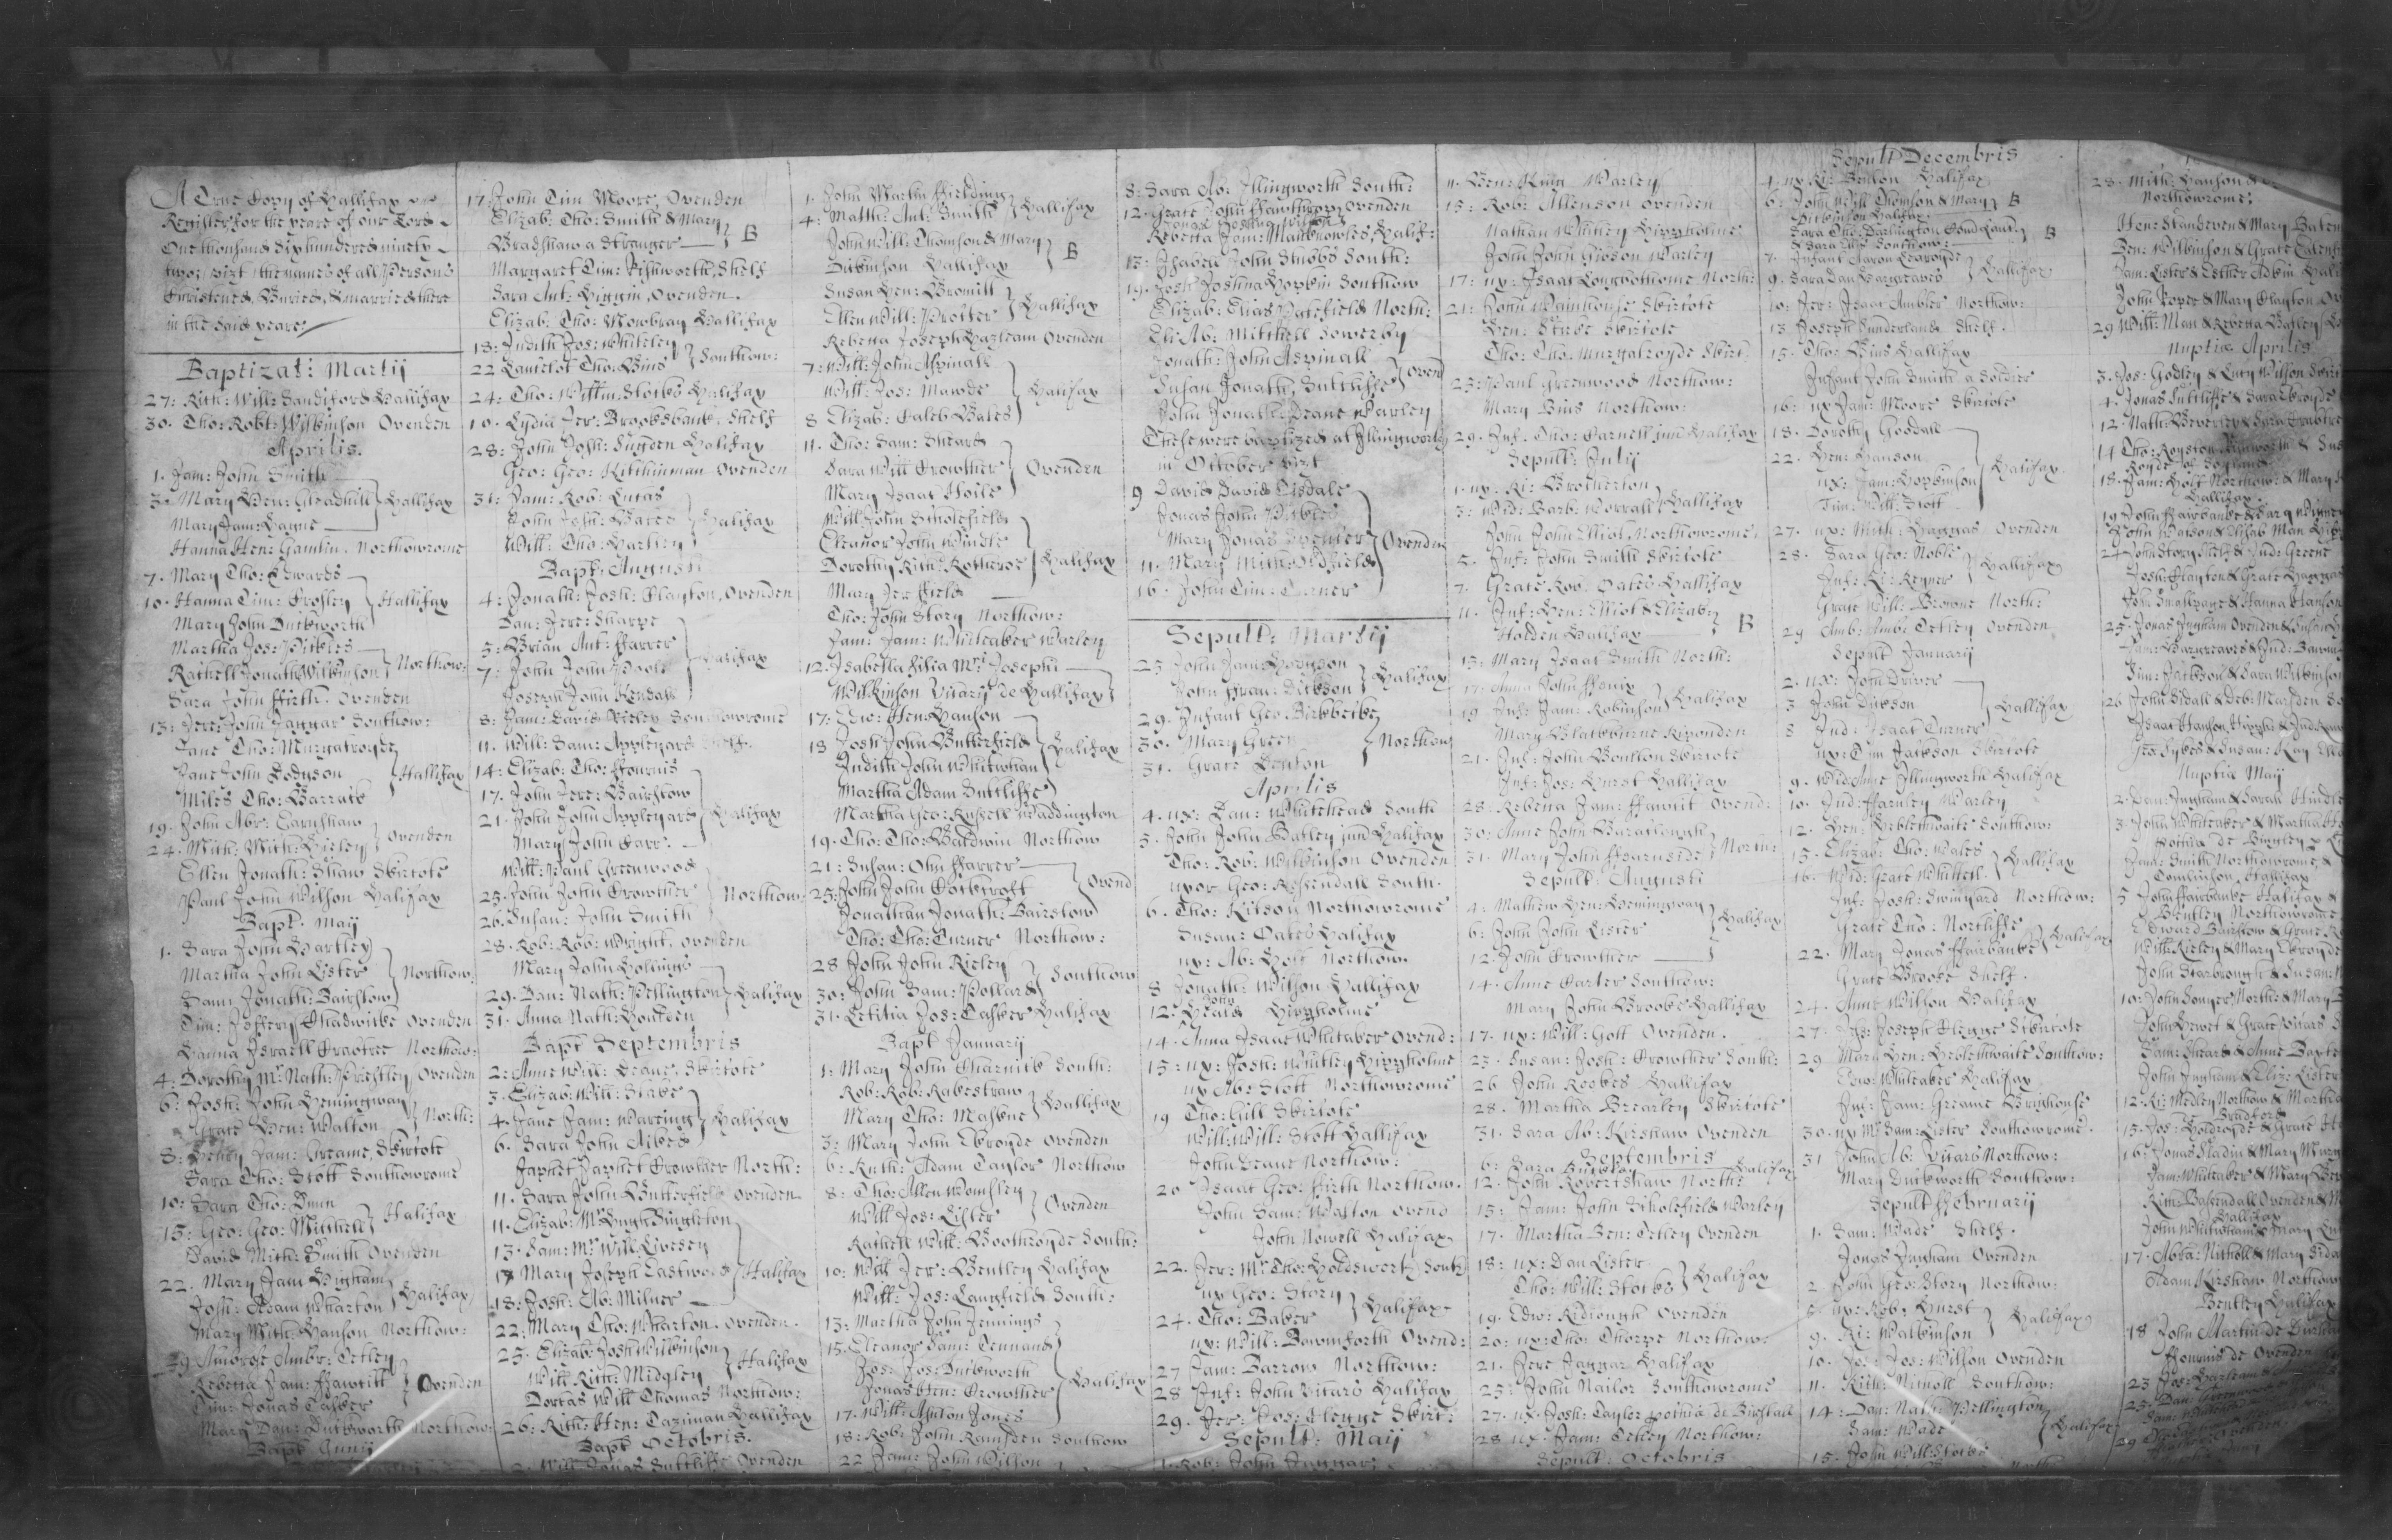 A True Copy of Hallifax
Register for the yeare of our Lord
One thousand six hundered ninety
two; vizt the names of all Persons
Cristened, Buried, & married there
in the said yeare
Baptizat: Martij
27: Rich: Will: Sandiford Hallifax
30. Tho: Robt: Wilkinson Ovenden
Aprilis.
1. Jam: John Smith
3. Mary Hen: Gleadhill } Hallifax
Mary Jam: Hayne
Hanna Hen: Gamlin. Northowrome
7. Mary Tho: Edwards
10. Hanna Tim: Crosley } Hallifax
Mary John Duckworth
Martha Jos: Pickles
Rachell Jonath: Wilkinson } Northow:
Sara John ffirth. Ovenden
13: Jere: John Jaggar Southow:
Jane Tho: Murgatroyde
Jane John Dodgson } Hallifax
Miles Tho: Barrack
19. John Abr: Earnshaw
24. Mich: Mich: Rieley } Ovenden
Ellen Jonath: Shaw Skircote
Paul John Wilson Halifax
Bapt. Maij
1. Sara John Hartley
Martha John Lister } Northow:
Sam: Jonath: Bairstow
Tim: Jeffery Chadwicke Ovenden
Hanna Israell Crabtree Northow:
4: Dorothy Mr Nath: Priestley Ovenden
6: Josh: John Hemingway
Grace Hen: Walton } North:
8: Henry Jam: Greame, Skircote
Sara Tho: Stott Southowrome
10: Sara Tho: Dunn
15: Geo: Geo: Mitchell } Halifax
David Mich: Smith Ovenden
22. Mary Jam: Bigham
Josh: Adam Wharton } Halifax
Mary Mich: Hanson Northow:
29 Ambrose Ambr: Tetley
Rebecca Jam: ffawcitt } Ovenden
Tim: Jonas Tasker
Mary Dan: Duckworth Northow:
Bapt Junij
17. John Tim Moore, Ovenden
Elizab: Tho: Smith & Mary
Bradshaw a Stranger } B
Margaret Tim: Rishworth, Shelf
Sara Ant: Higgin, Ovenden.
Elizab: Tho: Mowbray Hallifax
18: Judith Jos: Whiteley
22 Lancelot Tho: Bins } Southow:
24: Tho: Willm: Stocks Halifax
10. Lydia Jer: Brooksbank: Shelf
28: John Josh: Sugden Halifax
Geo: Geo: Kitchinman Ovenden
31: Jam: Rob: Lucas
John Josh: Bates } Halifax
Will: Tho: Hartley
Bapt: Augusti
4: Jonath: Josh: Clayton, Ovenden
Dan: Jere: Sharpe
5: Brian Ant: ffarrer
7: John John Poole } Halifax
Joseph John Kendall
8: Jam: David Rieley Southowrome
11. Will: Sam: Appleyard Shelf.
14: Elizab: Tho: ffournis
17. John Jere: Bairstow
21. John John Appleyard } Halifax
Mary John Carr.
Will: Paul Greenwood
25. John John Crowther } Northow:
26. Susan: John Smith
28. Rob: Rob: Wright, Ovenden
Mary John Hollings
29. Dan: Nath: Pellington } Halifax
31. Anna Nath: Houlden
Bapt Septembris
2: Anne Will: Deane, Skircote
3. Elizab: Will: Slake
4. Jane Jam: Warcing } Halifax
6. Sara John Aiked
Japhet Japhet Crowther North:
11. Sara John Butterfield Ovenden.
11. Elizab: Mr Hugh Singleton
13. Sam: Mr Will: Livesey
17 Mary Joseph Eastwood } Halifax
18: Josh: Ab: Milner
22: Mary Tho: Wharton. Ovenden.
25. Elizab: Josh Wilkinson
Will Rich: Midgley } Halifax
Dorcas Will Thomas Northow:
26: Rich: Hen: Taziman Hallifax
Bapt Octobris.
2. Will: Jonas Suttliffe Ovenden
1. John Martin ffielding
4: Matth: Ant: Smith } Hallifax
John Will: Thomson & Mary
Dickinson Hallifax } B
Susan Hen: Bromitt
Ellen Will: Procter } Hallifax
Rebecca Joseph Hargream Ovenden
7: Will: John Aspinall
Will: Jos: Mawde } Halifax
8 Elizab: Caleb Bates
11. Tho: Sam: Sheard
Sara Will Crowther } Ovenden
Mary Isaac Hoile
Will John Scholefield
Eleanor John Windle
Dorothy Rich: Rotheroe } Halifax
Mary Jer ffield
Tho: John Story Northow:
Jam: Jam: Whiteaker Warley
12. Isabella filia Mri Josephi
Wilkinson Vicarij de Hallifax
17: Edw: Hen: Hanson
18 Josh: John Butterfield } Halifax
Judith John Whitwham
Martha Adam Suttliffe
Martha Geo: Russell Waddington
19. Tho: Tho: Baldwin Northow
21: Susan: Ohn ffarrer
25: John John Cockcroft } Ovend
Jonathan Jonath: Bairstow
Tho: Tho: Turner Northow:
28 John John Rieley
30: John Sam: Pollard } Southow
31. Letitia Jos: Tasker Halifax
Bapt Januarij
1: Mary John Charnick South:
Rob: Rob: Rakestraw
Mary Tho: Maskue } Hallifax
3: Mary John Ekroyde Ovenden
6: Ruth: Adam Taylor Northow
8: Tho: Allen Womsley
Will Jos: Lister } Ovenden
Rachell Will: Boothroyde South:
10: Will Jer: Bentley Halifax
Will: Jos: Langfield South:
13: Martha John Jennings
15. Eleanor Sam: Tennand
Jos: Jos: Duckworth } Halifax
Jonas Hen: Crowther
17. Will: Ashton Jones
18: Rob: John Ramsden Southow
22 Jam: John Wilson
8: Sara Ab: Illingworth South:
12: Grace John Hawthrop Ovenden
Rebecca Jam: Mawknowles, Halif:
13: Isabell John Stubbs South:
19. Josh Joshua Hopkin Southow
Elizab: Elias Patefield North:
Eli: Ab: Mitchell Sowerby
Jonath: John Aspinall
Susan Jonath: Suttliffe } Oven
John Jonath: Deane Warley
These were baptized at Illingworth
in October vizt
9 David David Tisdale
Jonas John Pickles
Mary Jonas Spencer } Ovenden
11. Mary Mich: Oldfield
16. John Tim: Turner
Sepult: Martij
25 John Jam: Hodgson
John ffran: Dickson } Halifax
29. Infant Geo Birkbecke
30. Mary Green } Northow
31. Grace Denton
Aprilis
4. ux: Dan: Whitehead South
5. John John Batley junr Halifax
Tho: Rob: Wilkinson Ovenden
uxor Geo: Ressendall South.
6. Tho: Kitson Northowrome
Susan: Oates Halifax
ux: Ab: Hoyl Northow.
8 Jonath: Wilson Hallifax
12: John Heald Hipperholme
14. Anna Isaac Whitaker Ovend:
15: ux: Josh: Whitley Hipperholme
ux Ab: Stott Northowrome
19 Tho: Gill Skircote
Will: Will: Stott Hallifax
John Deane Northow:
20 Isaac Geo: ffirth Northow.
John Sam: Walton Ovend
John Nowell Halifax
22. Jer: Mr Tho: Holdsworth South
ux Geo: Story
24. Tho: Baker } Halifax
ux: Will: Dawnforth Ovend:
27 Jam: Barrow Northow:
28 Inf: John Vicars Halifax
29. Jer: Jos: Clegge Skirt:
Sepult: Maij
1. Rob: John Jaggar
11. Ben: King Warley
15: Rob: Allenson Ovenden
Nathan Whitley Hipperholme
John John Gibson Warley
17: ux: Isaac Longbothome North:
21: John Wainhouse Skircote
Hen: Stube Skircote
Tho: Tho: Murgatroyde Skirt:
23: Paul Greenwood Northow:
Mary Bins Northow:
29. Inf: Tho: Carnell junr Halifax
Sepult: Julij
1. ux. Ri: Brotherton
3: Wid: Barb: Worrall } Hallifax
John John Elliot, Northowrome,
5. Inf: John Smith Skircote
7. Grace Rob: Oates Hallifax
11. Inf: Hen: Elliot & Elizab:
Holden Halifax } B
13: Mary Isaac Smith North:
17: Anna John ffenix
19 Inf: Jam: Robinson } Halifax
Mary Blackburne Riponden
21. Inf: John Boulton Skircote
Inf: Jos: Hurst Hallifax
28: Rebecca Jam: ffawcit Ovend:
30: Anne John Baraclough
31. Mary John ffearnside } North:
Sepult: Augusti
4: Mathew Hen: Hemingway
6: John John Lister } Halifax
12. John Crowther
14. Anne Carter Southow:
Mary John Brooke Hallifax
17. ux: Will: Gott Ovenden.
23. Susan: Josh: Crowther South:
26 John Rookes Hallifax
28. Martha Brearley Skircote
31. Sara Ab: Kirshaw Ovenden
Septembris
6: Sara Burkley Halifax
12. John Robertshaw North:
15: Jam: John Scholefield Warley
17. Martha Ben: Tetley Ovenden
18: ux: Dan Lister
Tho: Will: Stocks } Halifax
19. Edw: Ridiough Ovenden
20: ux: Tho: Thorpe Northow:
21. Jere Jaggar Halifax
25: John Nailor Southowrome
27. ux. Josh: Taylor pothia de Birstall
28 ux: Jam: Tetley Northow:
Sepult: Octobris
Sepult Decembris
4. ux Ri: Benton Halifax
6: John Will Thomson & Mary
Dickinson Halifax } B
Sara Tho: Darlington
& Sara Ellis Southow: } B
7. Infant Aaron Learoyde
9. Sara Dan Hargreaves } Hallifax
10: Jer: Isaac Ambler Northow:
13 Joseph Sunderland Shelf.
15: Tho: Bins Hallifax
Infant John Smith a Soldier
16: ux Jam: Moore Skircote
18. Dorothy Goodall
22. Hen: Hanson
ux: Jam: Hopkinson } Halifax
Tim: Will: Stott
27. ux: Mich: Haggas Ovenden
28. Sara Geo: Noble
Inf: Ri: Reyner } Hallifax
Grace Will: Browne North:
29 Amb: Amb: Tetley Ovenden
Sepult Januarij
2. ux: John Driver
3 John Dickson } Hallifax
8 Jud: Isaac Turner
ux: Tim Jackson Skircote
9. Wid: Anne Illingworth Halifax
10. Jud: ffarnley Warley
12. Hen: Heblethwaite Southow:
13. Elizab: Tho: Wales
16. Wid: Grace Whittell } Hallifax
Inf: Josh: Swinyard Northow:
Grace Tho: Northliffe
22. Mary Jonas ffairbanke } Halifax
Grace Brooke Shelf.
24. Anne Wilson Halifax
27: Inf: Joseph Clegge Skircote
29 Mary Hen: Heblethwaite Southow:
Edw: Whiteaker Halifax
Inf: Jam: Greame Brighouse
30. ux Mr Sam: Lister Southowrome.
31 John Ab: Vicars Northow:
Mary Duckworth Southow:
Sepult ffebruarij
1. Sam: Wade Shelf.
Jonas Ingham Ovenden
2 John Geo: Story Northow:
ux: Rob: Hurst
9. Ri: Walkinson } Halifax
10. Jos: Jos: Wilson Ovenden
11. Rich: Nicholl Southow:
14: Dan: Nath: Pellington
Sam: Wade } Halifax
15. John Will: Stocks
28. Mich: Hanson
Northowrome;
Hen: Standeven & Mary Baten
Ben: Wilkinson & Grace
Jam: Lister & Esther Adkin Hali
John Roper & Mary Clayton Ov
29 Will: Man & Rebecca Batley
Nuptiæ Aprilis
3. Jos: Godley & Lucy Wilson Skir
4. Jonas Suttliffe & Sara Ekroyde
12. Nath: Beverley & Sara Crabtre
14 Tho: Royston
18. Jam: Hoyl Northow: & Mary
Hallifax
19 John ffairbanke & Sara
John Watson & Elizab Man
24 John Story Shelf & Jud: Greene
Josh: Clayton & Grace Haggas
John Smallpage & Hanna Hanson
25. Jonas Ingham Ovenden & Susan
Jam: Hargreaves & Jud:
Tim: Jackson & Sara Wilkinson
26 John Sidall & Deb: Marsden So
Isaac Hanson Hipp: & Jud
Geo: Sykes & Susan: Kay
Nuptiæ Maij
2. Dan: Ingham & Sarah Hindle
3. John Whiteaker & Martha
pothia de Bingley
Jam: Smith Northowrome, &
Tomlinson, Hallifax
5 John ffairbanke Halifax &
Bentley Northowrome
Edward Bairstow & Grace
Will: Rieley & Mary Ekroyde
John Scarbrough & Susan:
10: John Songer North: & Mary
John Hewet & Grace Vicars
Sam: Sheard & Anne Baxte
John Ingham & Eliz: Lister
12: Ri: Medley Northow & Martha
Bradford
15. Jos: Holdroyde & Grace
16: Jonas Sladin & Mary Murg
Jam: Whiteaker & Mary
Rich: Basendall Ovenden &
Hallifax
John Whitwham & Mary
17. Abra: Nicholl & Mary Sida
Adam Kirshaw Northow
Bentley Halifax
18 John Martin de
ffournis de Ovenden
23 Jos: Hargream
25. Dan: Greenwood
29